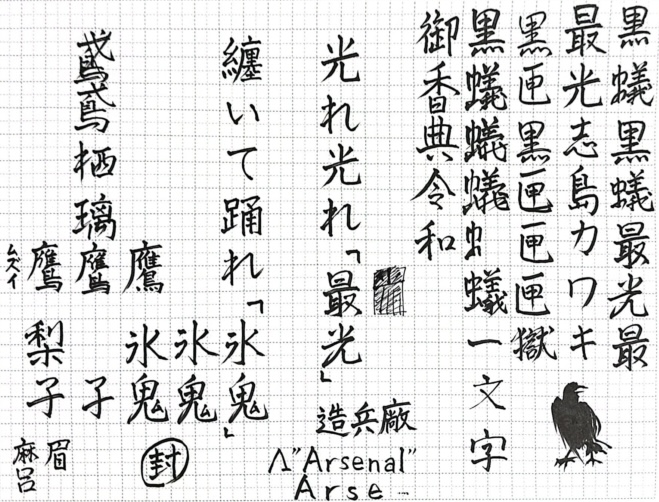 黒蟻黒蟻最光最
最光志島カワキ
黒匣黒匣匣匣獄
黒蟻蟻蟻虫蟻一文字
御香典令和
光れ光れ「最光」
造兵廠
Λ"Arsenal"
Arse
纏いて踊れ「氷鬼」
氷鬼
鷹 氷鬼
封
鳶鳶栖璃鷹 子
鷹 梨子
ムズイ
眉
麻呂